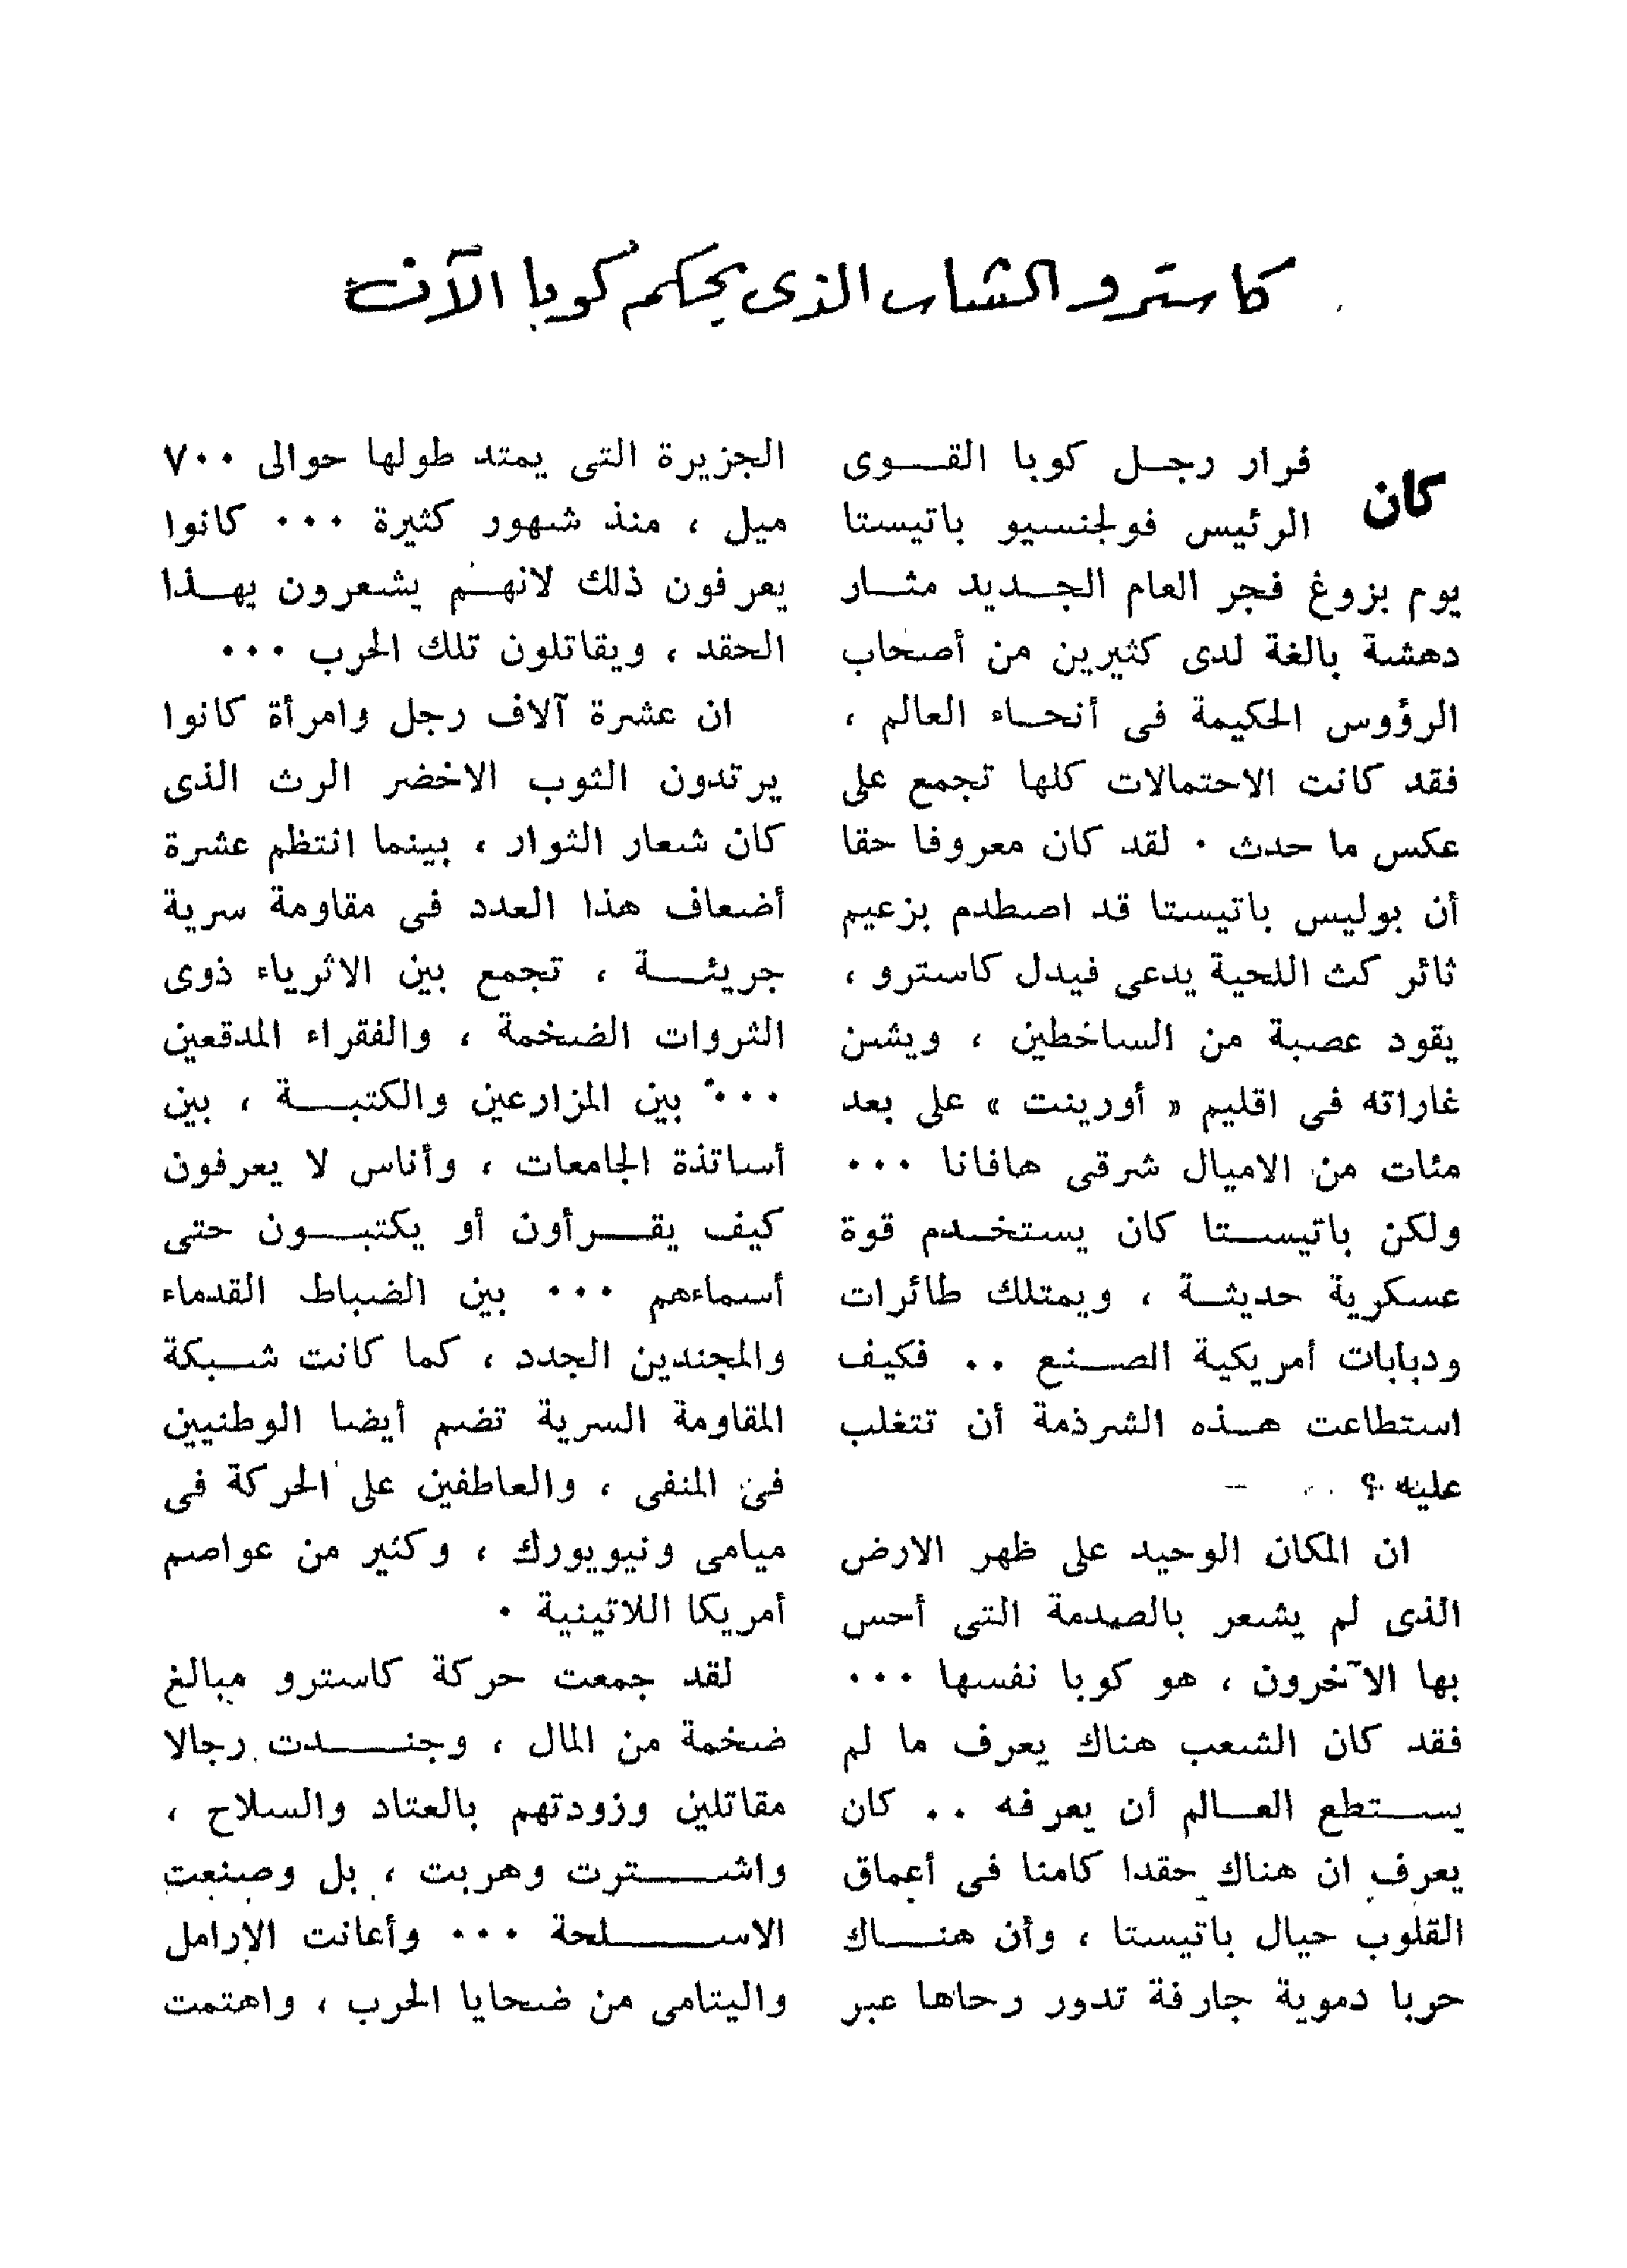 كاسترو الشاب الذى يحكم كوبا الآن
كان فرار رجل كوبا القوى
الرئيس فولجنسيو باتيستا
يوم بزوغ فجر العام الجديد مثار
دهشة بالغة لدى كثيرين من أصحاب
الرؤوس الحكيمة فى أنحاء العالم ،
فقد كانت الاحتمالات كلها تجمع على
عكس ما حدث . لقد كان معروفا حقا
أن بوليس باتيستا قد اصطدم بزعيم
ثائر كث اللحية يدعى فيدل كاسترو ،
يقود عصبة من الساخطين ، ويشن
غاراته فى اقليم « أورينت » على بعد
مئات من الاميال شرقى هافانا ...
ولكن باتيستا كان يستخدم قوة
عسكرية حديثة ، ويمتلك طائرات
ودبابات أمريكية الصنع .. فكيف
استطاعت هذه الشرذمة أن تتغلب
عليه ؟
ان المكان الوحيد على ظهر الارض
الذى لم يشعر بالصدمة التى أحس
بها الآخرون ، هو كوبا نفسها ...
فقد كان الشعب هناك يعرف ما لم
يستطع العالم أن يعرفه .. كان
يعرف ان هناك حقدا كامنا فى أعماق
القلوب حيال باتيستا ، وأن هناك
حربا دموية جارفة تدور رحاها عبر
الجزيرة التى يمتد طولها حوالى ٧٠٠
ميل ، منذ شهور كثيرة ... كانوا
يعرفون ذلك لانهم يشعرون بهذا
الحقد ، ويقاتلون تلك الحرب ...
ان عشرة آلاف رجل وامرأة كانوا
يرتدون الثوب الاخضر الرث الذى
كان شعار الثوار ، بينما انتظم عشرة
أضعاف هذا العدد فى مقاومة سرية
جريئة ، تجمع بين الاثرياء ذوى
الثروات الضخمة ، والفقراء المدقعين
... بين المزارعين والكتبة ، بين
أساتذة الجامعات ، وأناس لا يعرفون
كيف يقرأون أو يكتبون حتى
أسماءهم ... بين الضباط القدماء
والمجندين الجدد ، كما كانت شبكة
المقاومة السرية تضم أيضا الوطنيين
فى المنفى ، والعاطفين على الحركة فى
ميامى ونيويورك ، وكثير من عواصم
أمريكا اللاتينية .
لقد جمعت حركة كاسترو مبالغ
ضخمة من المال ، وجندت رجالا
مقاتلين وزودتهم بالعتاد والسلاح ،
واشترت وهربت ، بل وصنعت
الاسلحة ... وأعانت الارامل
واليتامى من ضحايا الحرب ، واهتمت